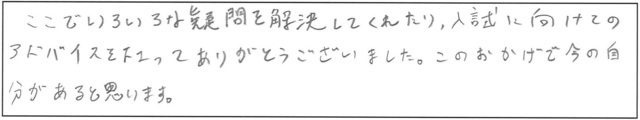 ここでいろいろな疑問を解決してくれたり,入試に向けての
アドバイスを下さってありがとうございました。このおかげで今の自
分があると思います。